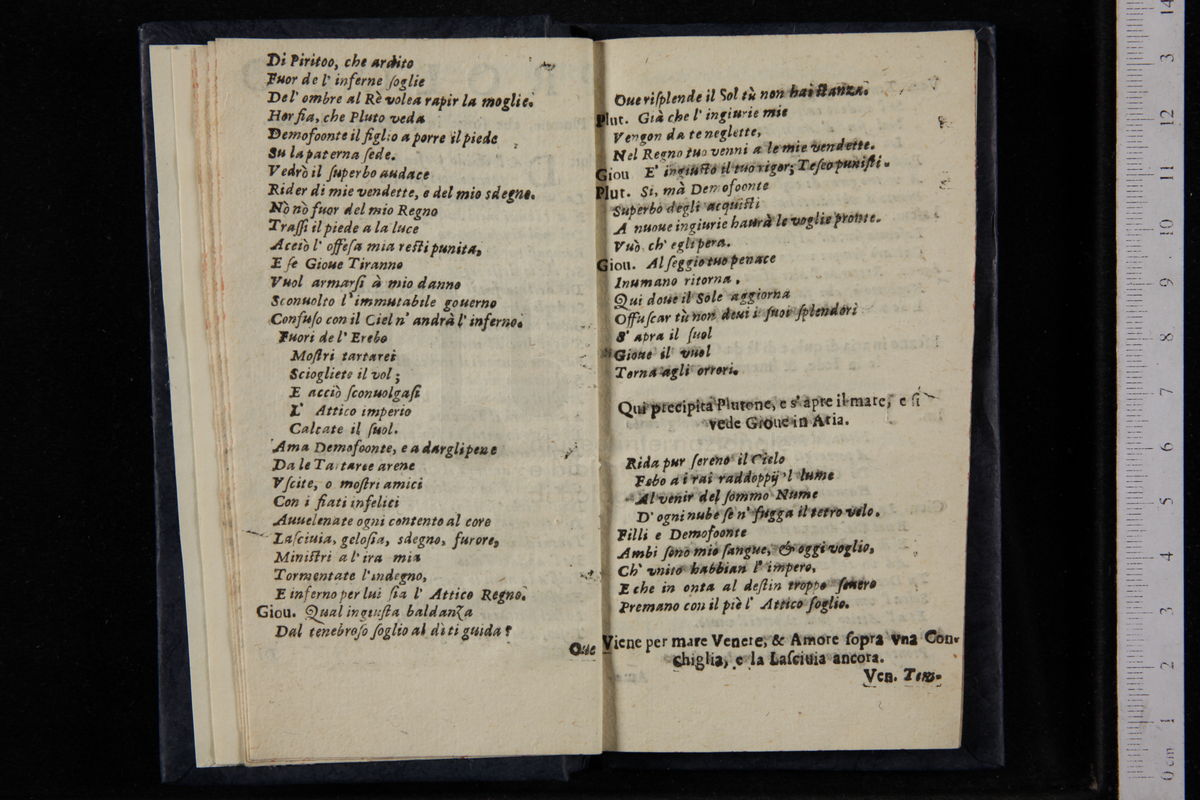 Di Piritoo, che ardito
Fuor de l' inferne ſoglie
De l' ombre al Rè volea rapir la moglie.
Hor fia, che Pluto veda
Demofoonte il figlio a porre il piede
Su la paterna ſede.
Vedrò il ſuperbo audace
Rider di mie vendette, e del mio sdegno.
Nò nò fuor del mio Regno
Traſſi il piede a la luce
Acciò l' offeſa mia reſti punita,
E ſe Gioue Tiranno
Vuol armarſi à mio danno
Sconuolto l' immutabile gouerno
Confuſo con il Ciel n' andrà l' inferno.
Fuori de l' Erebo
Moſtri tartarei
Sciogliete il vol;
E acciò ſconuolgaſi
L' Attico imperio
Calcate il ſuol.
Ama Demofoonte, e a darglipene
Da le Tartaree arene
Vſcite, o moſtri amici
Con i fiati infelici
Auuelenate ogni contento al core
Laſciuia, geloſia, sdegno, furore,
Miniſtri a l' ira mia
Tormentate l'indegno,
E inferno per lui ſia l' Attico Regno.
Giou. Qual ingiuſta baldanza
Dal tenebroſo ſoglio al dì ti guida?
Oue
Oue riſplende il Sol tù non hai ſtanza.
Plut. Già che l' ingiurie mie
Vengon da te neglette,
Nel Regno tuo venni a le mie vendette.
Giou E' ingiuſto il tuo rigor; Teſeo puniſti.
Plut. Si, mà Demofoonte
Superbo degli acquiſti
A nuoue ingiurie haurà le voglie pronte.
Vuò ch' egli pera.
Giou. Al ſeggio tuo penace
Inumano ritorna.
Qui doue il Sole aggiorna
Offuſcar tù non deui i ſuoi ſplendori
S' apra il ſuol
Gioue il vuol
Torna agli orrori.
Qui precipita Plutone, e s' apre il mare, e ſi
vede Gioue in Aria.
Rida pur ſereno il Cielo
Febo a i rai raddoppij 'l lume
Al venir del ſommo Nume
D' ogni nube ſe n' fugga il tetro velo.
Filli e Demofoonte
Ambi ſono mio ſangue, & oggi voglio,
Ch' vnito habbian l' impero,
E che in onta al deſtin troppo ſeuero
Premano con il piè l' Attico ſoglio.
Viene per mare Venere, & Amore ſopra vna Con-
chiglia, e la Laſciuia ancora.
Ven. Tem-